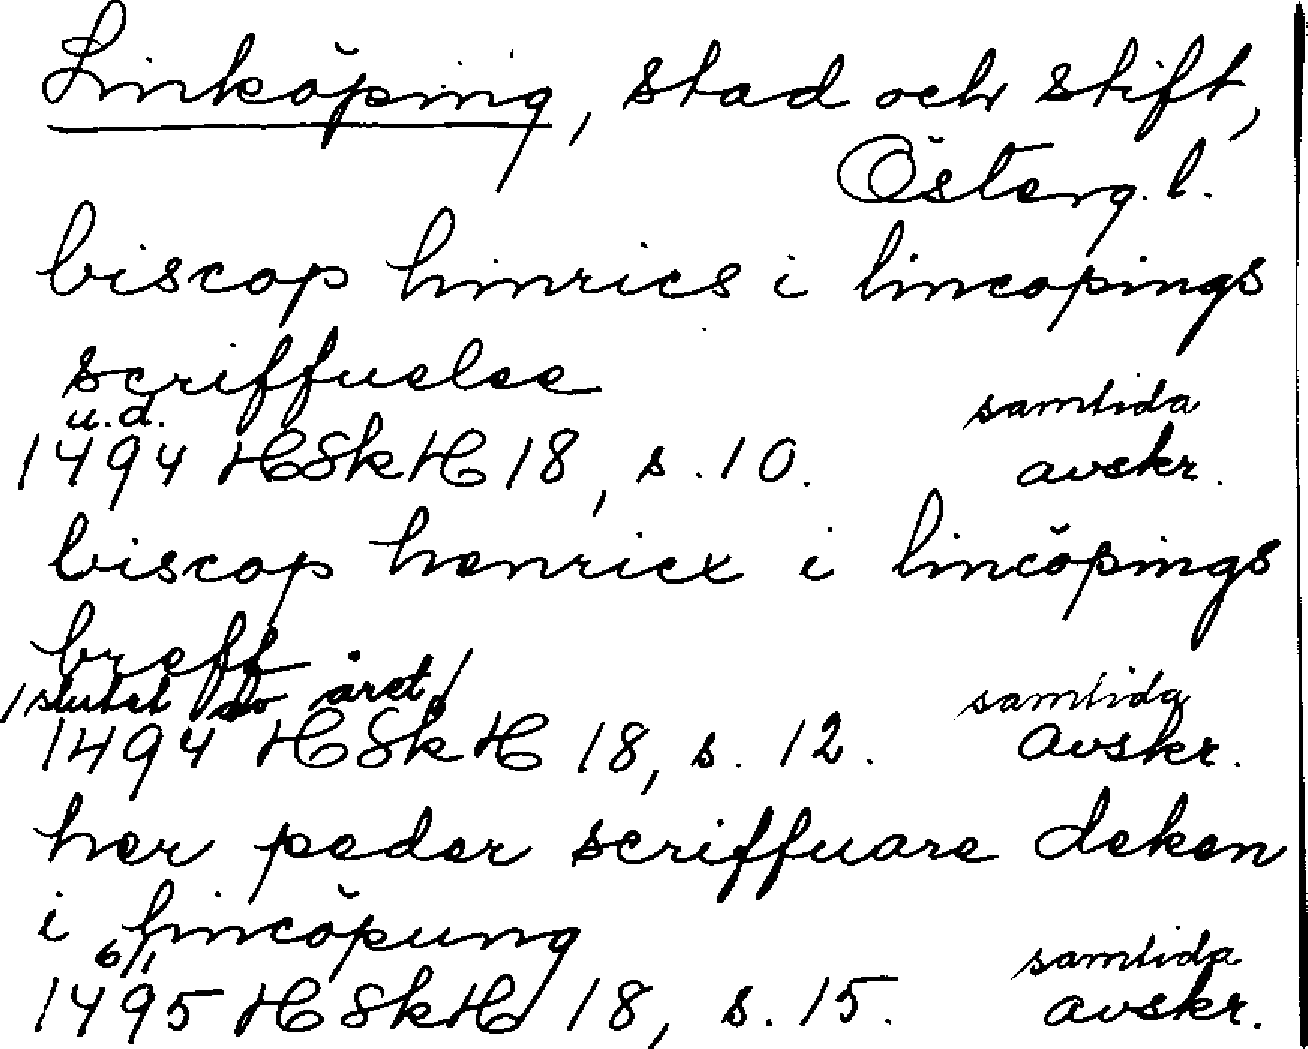 Linköping, stad och stift,
Österg.l.
biscop hinrics i lincopings
scriffuelse
u.d. samtida
1494 HSkH 18, s. 10. avskr.
biscop henricx i lincöpings
breff
/slutet av året/ samtida
1494 HSkH 18, s. 12. avskr.
her peder scriffuare deken
i lincöpung
6/1 samtida
1495 HSkH 18, s. 15. avskr.